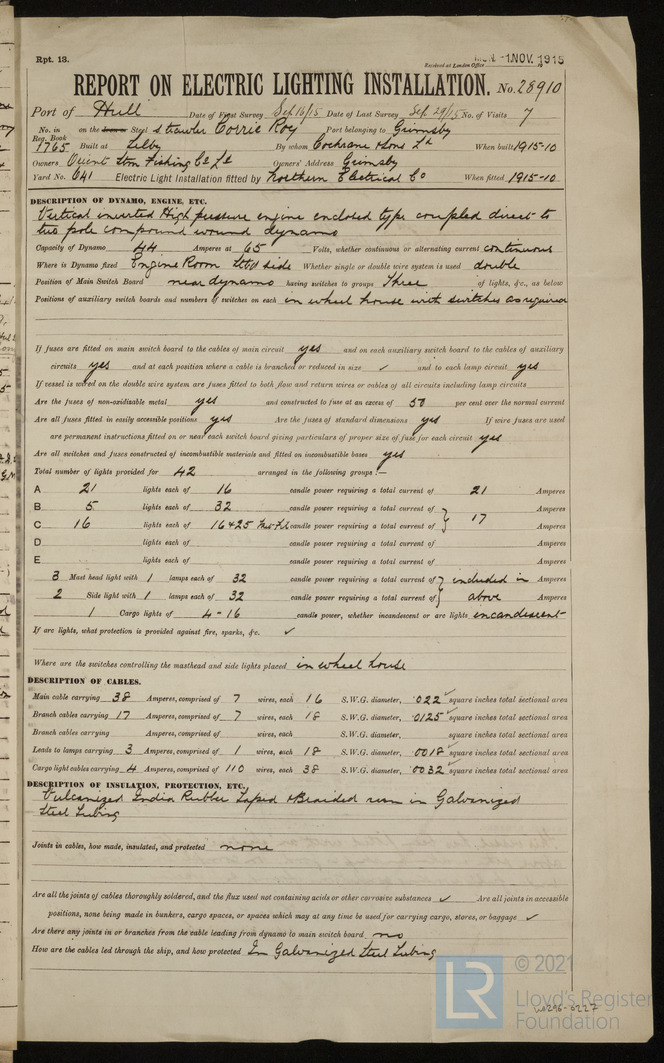 Rpt. 13.
Received at London Office MON. -1 NOV. 1915
REPORT ON ELECTRIC LIGHTING INSTALLATION. No. 28910
Port of Hull Date of First Survey Sep 16/15 Date of Last Survey Sep 29/15 No. of Visits 7
No. in Reg. Book on the Iron or Steel s. trawler Corrie Roy Port belonging to Grimsby
1765 Built at Selby By whom Cochrane & Sons Ld When built 1915-10
Owners Stm Fishing Co Ld Owners' Address Grimsby
Yard No. 641 Electric Light Installation fitted by Northern Electrical Co When fitted 1915-10
DESCRIPTION OF DYNAMO, ENGINE, ETC.
Vertical inverted High pressure engine enclosed type coupled direct to
two pole compound wound dynamo
Capacity of Dynamo 44 Amperes at 65 Volts, whether continuous or alternating current continuous
Where is Dynamo fixed Engine Room side Whether single or double wire system is used double
Position of Main Switch Board near dynamo having switches to groups Three of lights, &c., as below
Positions of auxiliary switch boards and numbers of switches on each in wheel house with switches as required
If fuses are fitted on main switch board to the cables of main circuit yes and on each auxiliary switch board to the cables of auxiliary
circuits yes and at each position where a cable is branched or reduced in size ✓ and to each lamp circuit yes
If vessel is wired on the double wire system are fuses fitted to both flow and return wires or cables of all circuits including lamp circuits
Are the fuses of non-oxidizable metal yes and constructed to fuse at an excess of 50 per cent over the normal current
Are all fuses fitted in easily accessible positions yes Are the fuses of standard dimensions yes If wire fuses are used
are permanent instructions fitted on or near each switch board giving particulars of proper size of fuse for each circuit yes
Are all switches and fuses constructed of incombustible materials and fitted on incombustible bases yes
Total number of lights provided for 42 arranged in the following groups :—
A 21 lights each of 16 candle power requiring a total current of 21 Amperes
B 5 lights each of 32 candle power requiring a total current of } 17 Amperes
C 16 lights each of 16 + 25 candle power requiring a total current of Amperes
D lights each of candle power requiring a total current of Amperes
E lights each of candle power requiring a total current of Amperes
3 Mast head light with 1 lamps each of 32 candle power requiring a total current of } included in Amperes
2 Side light with 1 lamps each of 32 candle power requiring a total current of above Amperes
1 Cargo lights of 4-16 candle power, whether incandescent or arc lights encandescent
If arc lights, what protection is provided against fire, sparks, &c. ✓
Where are the switches controlling the masthead and side lights placed in wheel house
DESCRIPTION OF CABLES.
Main cable carrying 38 Amperes, comprised of 7 wires, each 16 S.W.G. diameter, .022 ✓ square inches total sectional area
Branch cables carrying 17 Amperes, comprised of 7 wires, each 18 S.W.G. diameter, .0125 ✓ square inches total sectional area
Branch cables carrying Amperes, comprised of wires, each S.W.G. diameter, square inches total sectional area
Leads to lamps carrying 3 Amperes, comprised of 1 wires, each 18 S.W.G. diameter, .0018 ✓ square inches total sectional area
Cargo light cables carrying 4 Amperes, comprised of 110 wires, each 38 S.W.G. diameter, .0032 ✓ square inches total sectional area
DESCRIPTION OF INSULATION, PROTECTION, ETC.
Vulcanized India Rubber Taped & Braided run in Galvanized
Steel Tubing
Joints in cables, how made, insulated, and protected none
Are all the joints of cables thoroughly soldered, and the flux used not containing acids or other corrosive substances ✓ Are all joints in accessible
positions, none being made in bunkers, cargo spaces, or spaces which may at any time be used for carrying cargo, stores, or baggage ✓
Are there any joints in or branches from the cable leading from dynamo to main switch board no
How are the cables led through the ship, and how protected In Galvanized Steel Tubing
LR © 2021
Lloyd's Register
Foundation
W296-0227